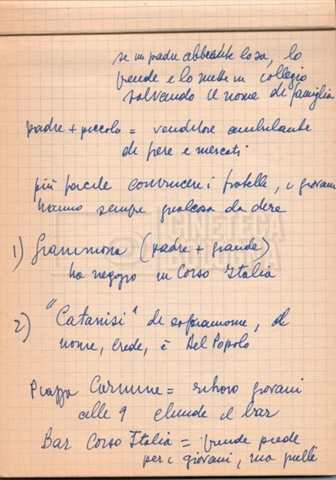 se un padre abbiente lo sa, lo
prende e lo mette in collegio
salvando il nome di famiglia
padre + piccolo = venditore ambulante
di fiere e mercati
più facile convincere i fratelli, i giovani
hanno sempre qualcosa da dire
1) Grammona (padre + grande)
ha negozio in Corso Italia
2) "Catanisi" di soprannome, di
nome, crede, è Del Popolo
Piazza Carmine = ritrovo giovani
alle 9 chiude il bar
Bar Corso Italia = prende piede
per i giovani, ma quelli
CINETECA
BOLOGNA